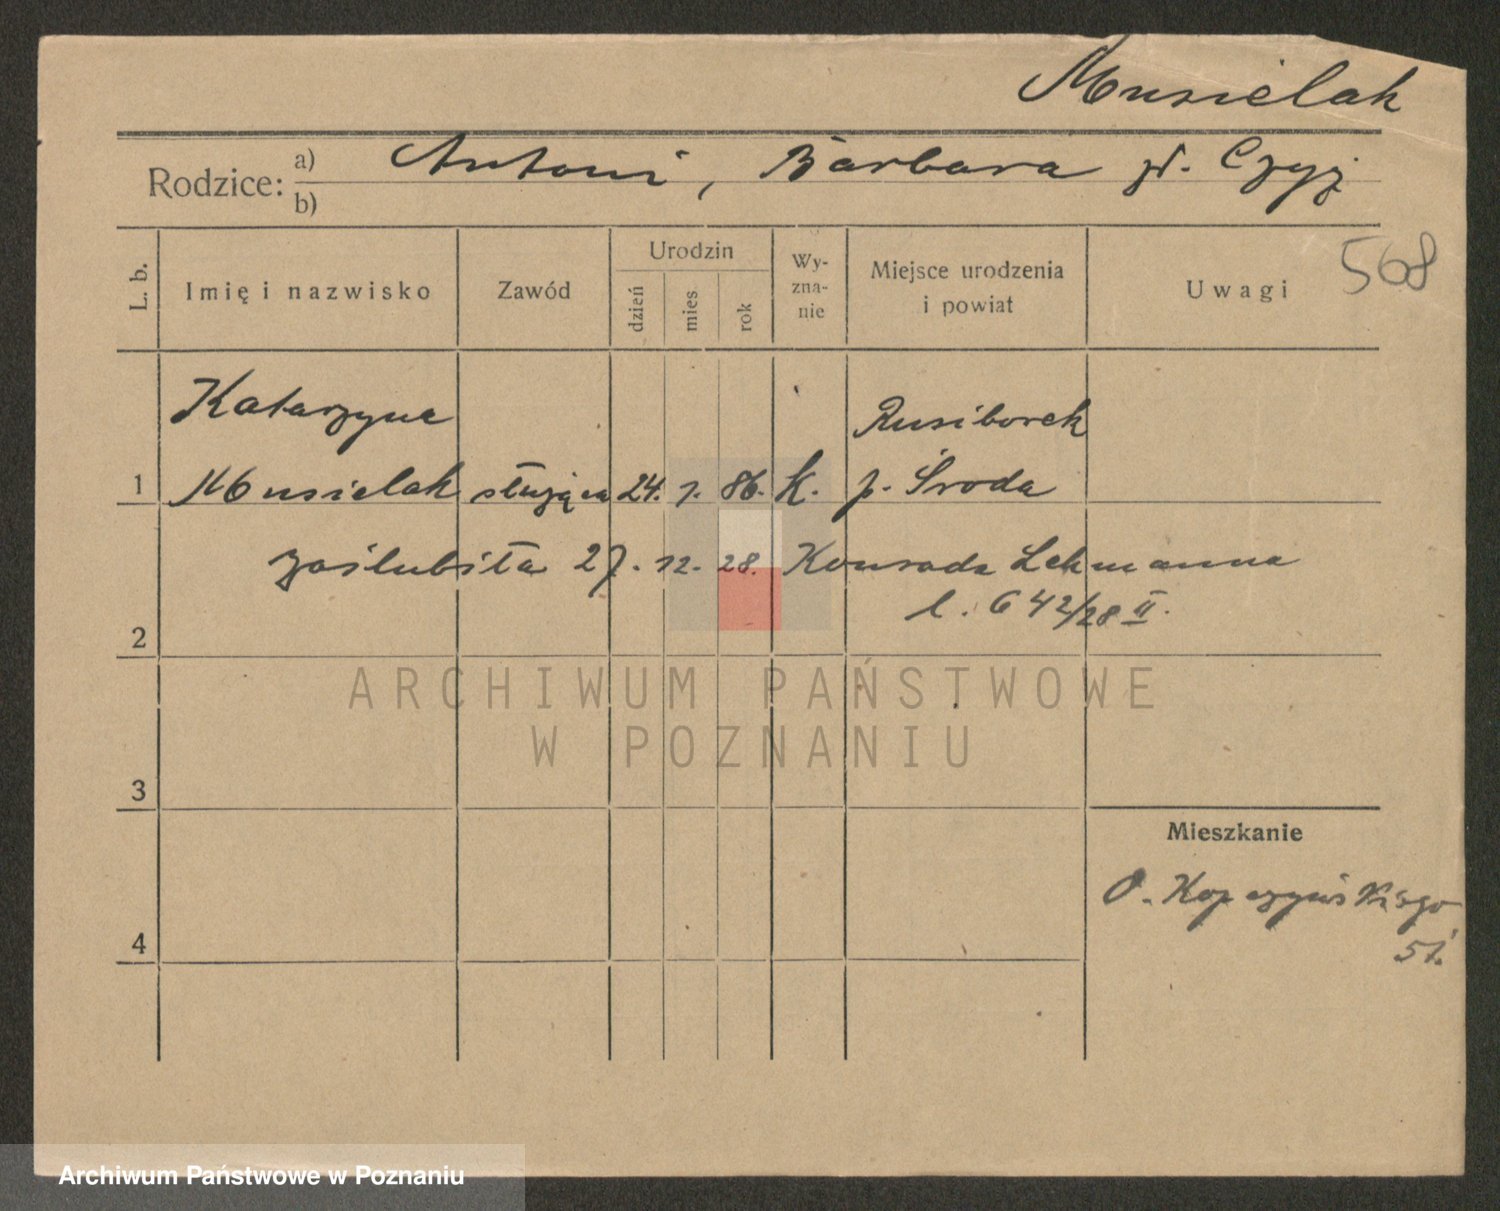 Musielak
Rodzice: a) Antoni, Barbara zd. Czyż
b)
568
L. b. Imię i nazwisko Zawód Urodzin dzień mies rok Wyznanie Miejsce urodzenia i powiat Uwagi
Katarzyna Rusiborek
1 Musielak służąca 24. 1. 86. k. p. Środa
zaślubiła 27. 12. 28. Konrada Lehmanna
l. 642/28 II.
2
ARCHIWUM PAŃSTWOWE
W POZNANIU
3
Mieszkanie
O. Kopczyńskiego
51.
4
Archiwum Państwowe w Poznaniu